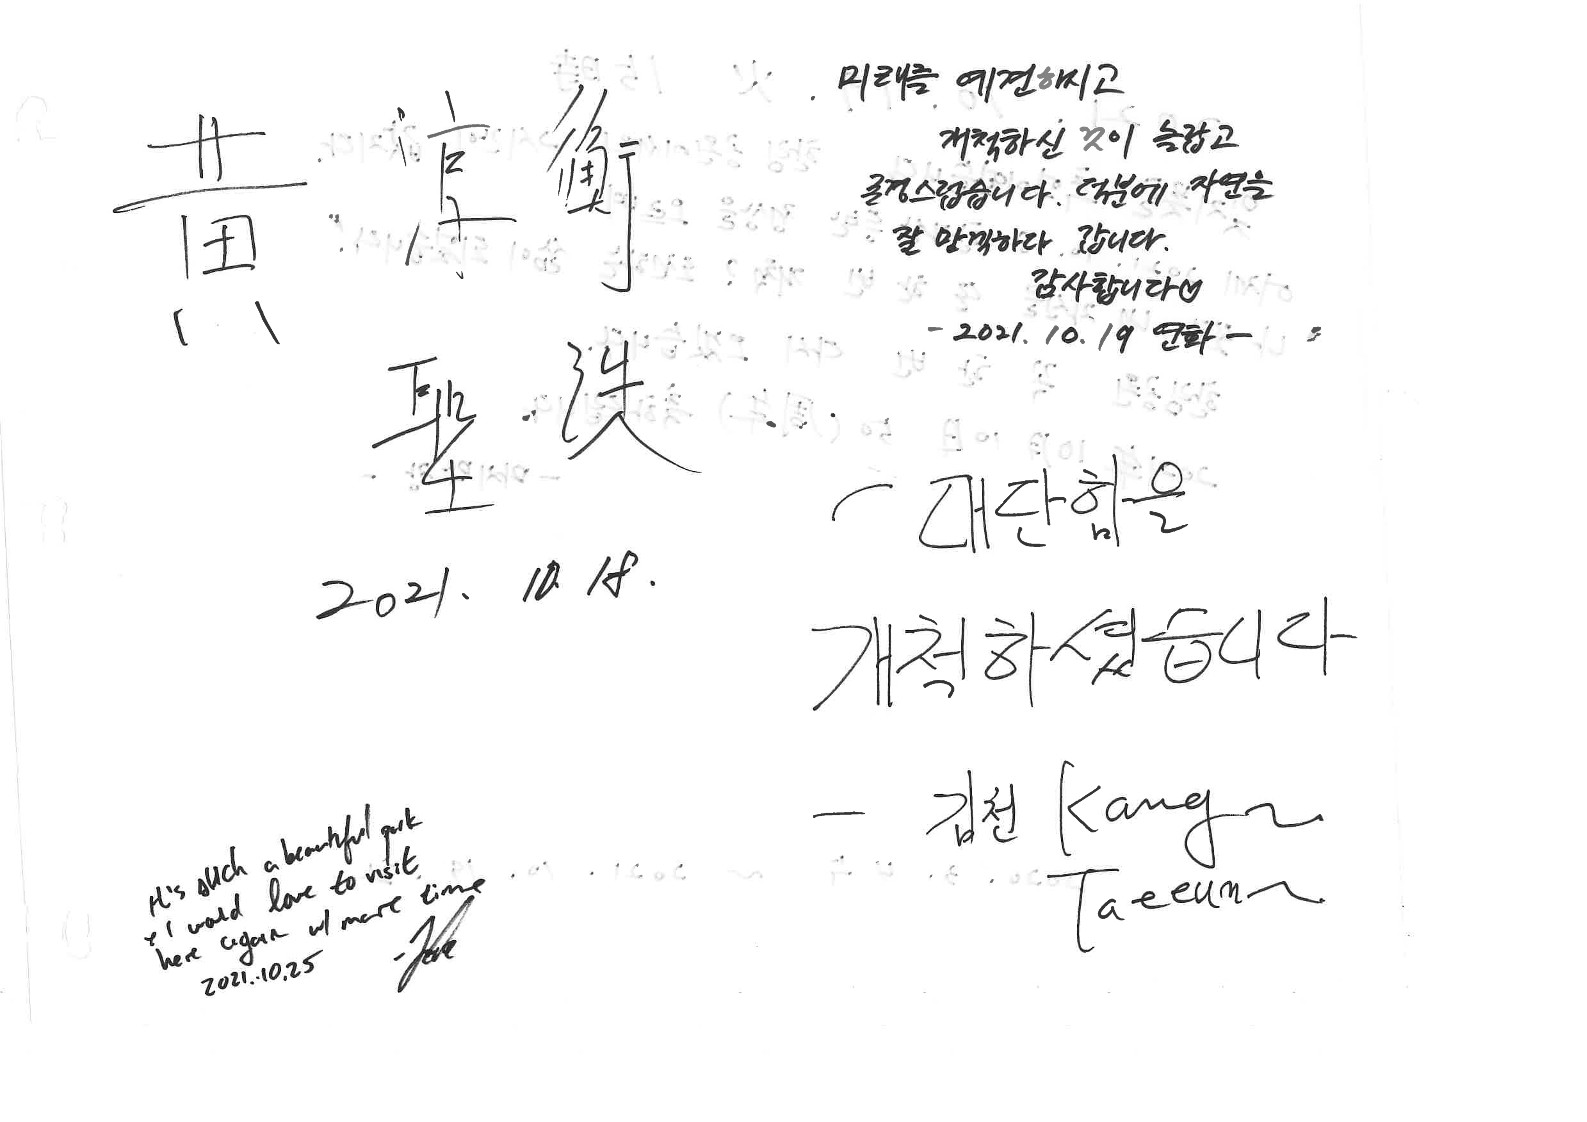 黃 淳 衡
聖 泆
2021. 10. 18.
It's such a beautiful park
& I would love to visit
here again w/ more time
2021.10.25
미래를 예견하시고
개척하신 것이 놀랍고
존경스럽습니다. 덕분에 자연을
잘 만끽하다 갑니다.
감사합니다♡
- 2021. 10. 19 연화 -
대단함을
개척하셨습니다
- 김천 Kang
Taeeun